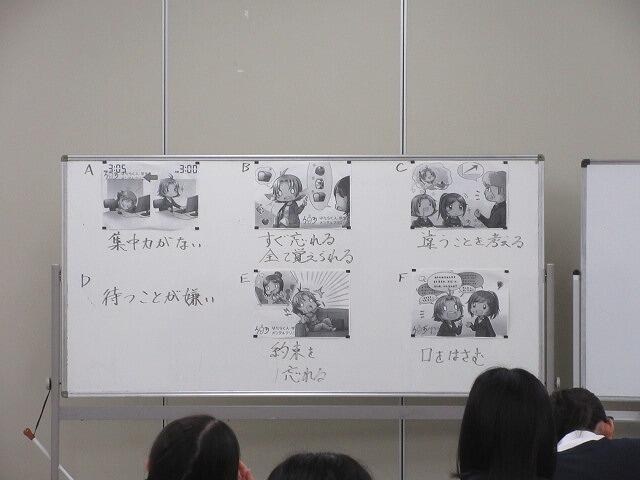 A
3:05
3:00
集中力がない
B
すぐ忘れる
全て覚えられる
C
違うことを考える
D
待つことが嫌い
E
約束を
忘れる
F
口をはさむ